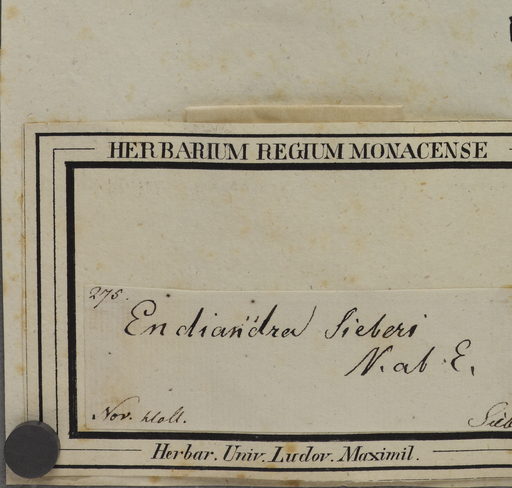 HERBARIUM REGIUM MONACENSE
275.
Endiandra Sieberi
N. ab E.
Nov. Holl.
Herbar. Univ. Ludov. Maximil.